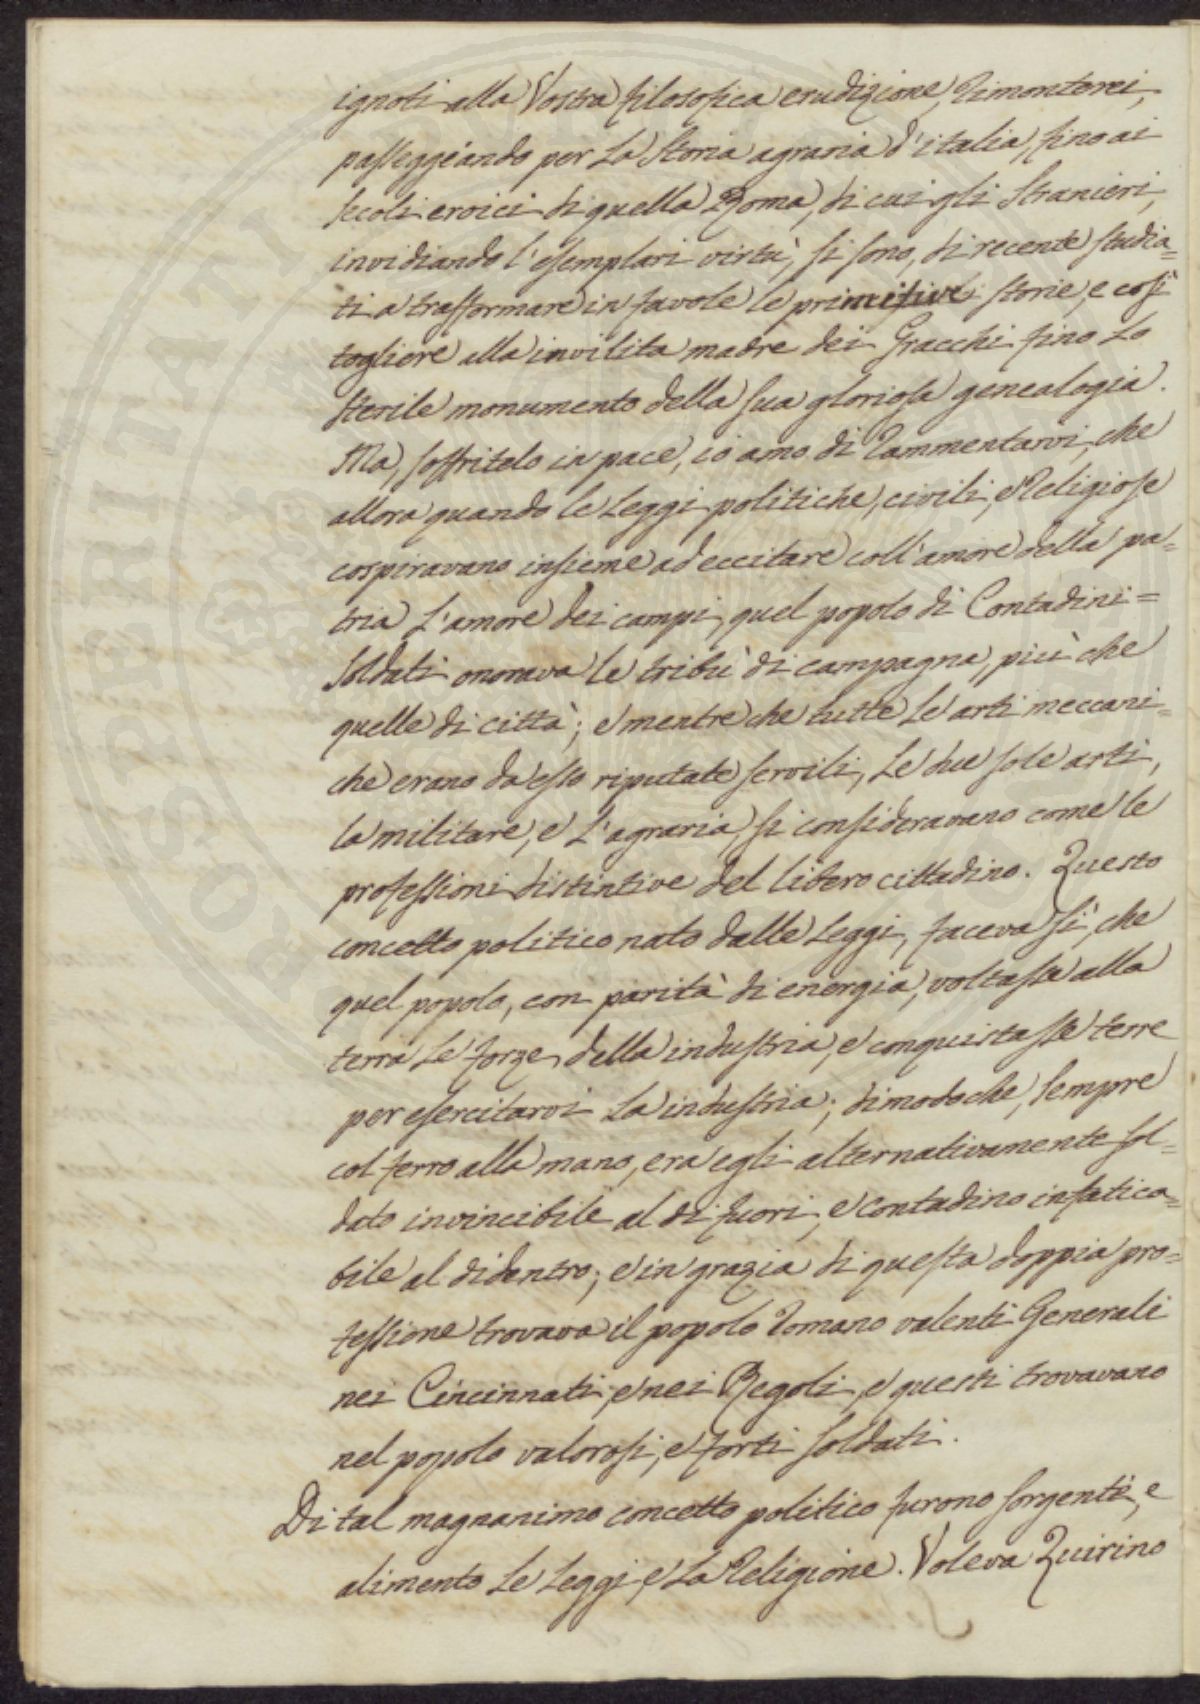 ignoti alla Vostra filosofica erudizione, Rimonterei,
passeggeando per la Storia agraria d'italia, fino ai
secoli eroici di quella Roma, di cui gli Stranieri,
invidiando l'esemplari virtù, si sono, di recente studia=
ti a trasformare in favole le primitive storie, e così
togliere alla invilita madre dei Gracchi fino lo
sterile monumento della sua gloriosa genealogia.
Ma, soffritelo in pace, io amo di Rammentarvi, che
allora quando le Leggi politiche, civili, e Religiose
cospiravano insieme ad eccitare coll'amore della pa=
tria L'amore dei campi, quel popolo di Contadini=
Soldati onorava le tribù di campagna, più che
quelle di città; e mentre che tutte le arti meccani=
che erano da esso riputate servili, Le due sole arti,
la militare, e L'agraria, si consideravano come le
professioni distintive del libero cittadino. Questo
concetto politico nato dalle Leggi, faceva sì, che
quel popolo, con parità di energia, voltasse alla
terra Le forze della industria, e conquistasse terre
per esercitarvi La industria; dimodoche, sempre
col ferro alla mano, era egli alternativamente sol=
dato invincibile al di fuori, e contadino infatica=
bile al didentro; e in grazia di questa doppia pro=
fessione trovava il popolo Romano valenti Generali
nei Cincinnati, e nei Regoli, e questi trovavano
nel popolo valorosi, e forti soldati.
Di tal magnanimo concetto politico furono sorgenti, e
alimento Le Leggi, e La Religione. Voleva Quirino
ROSPERITATI PUBLICAE